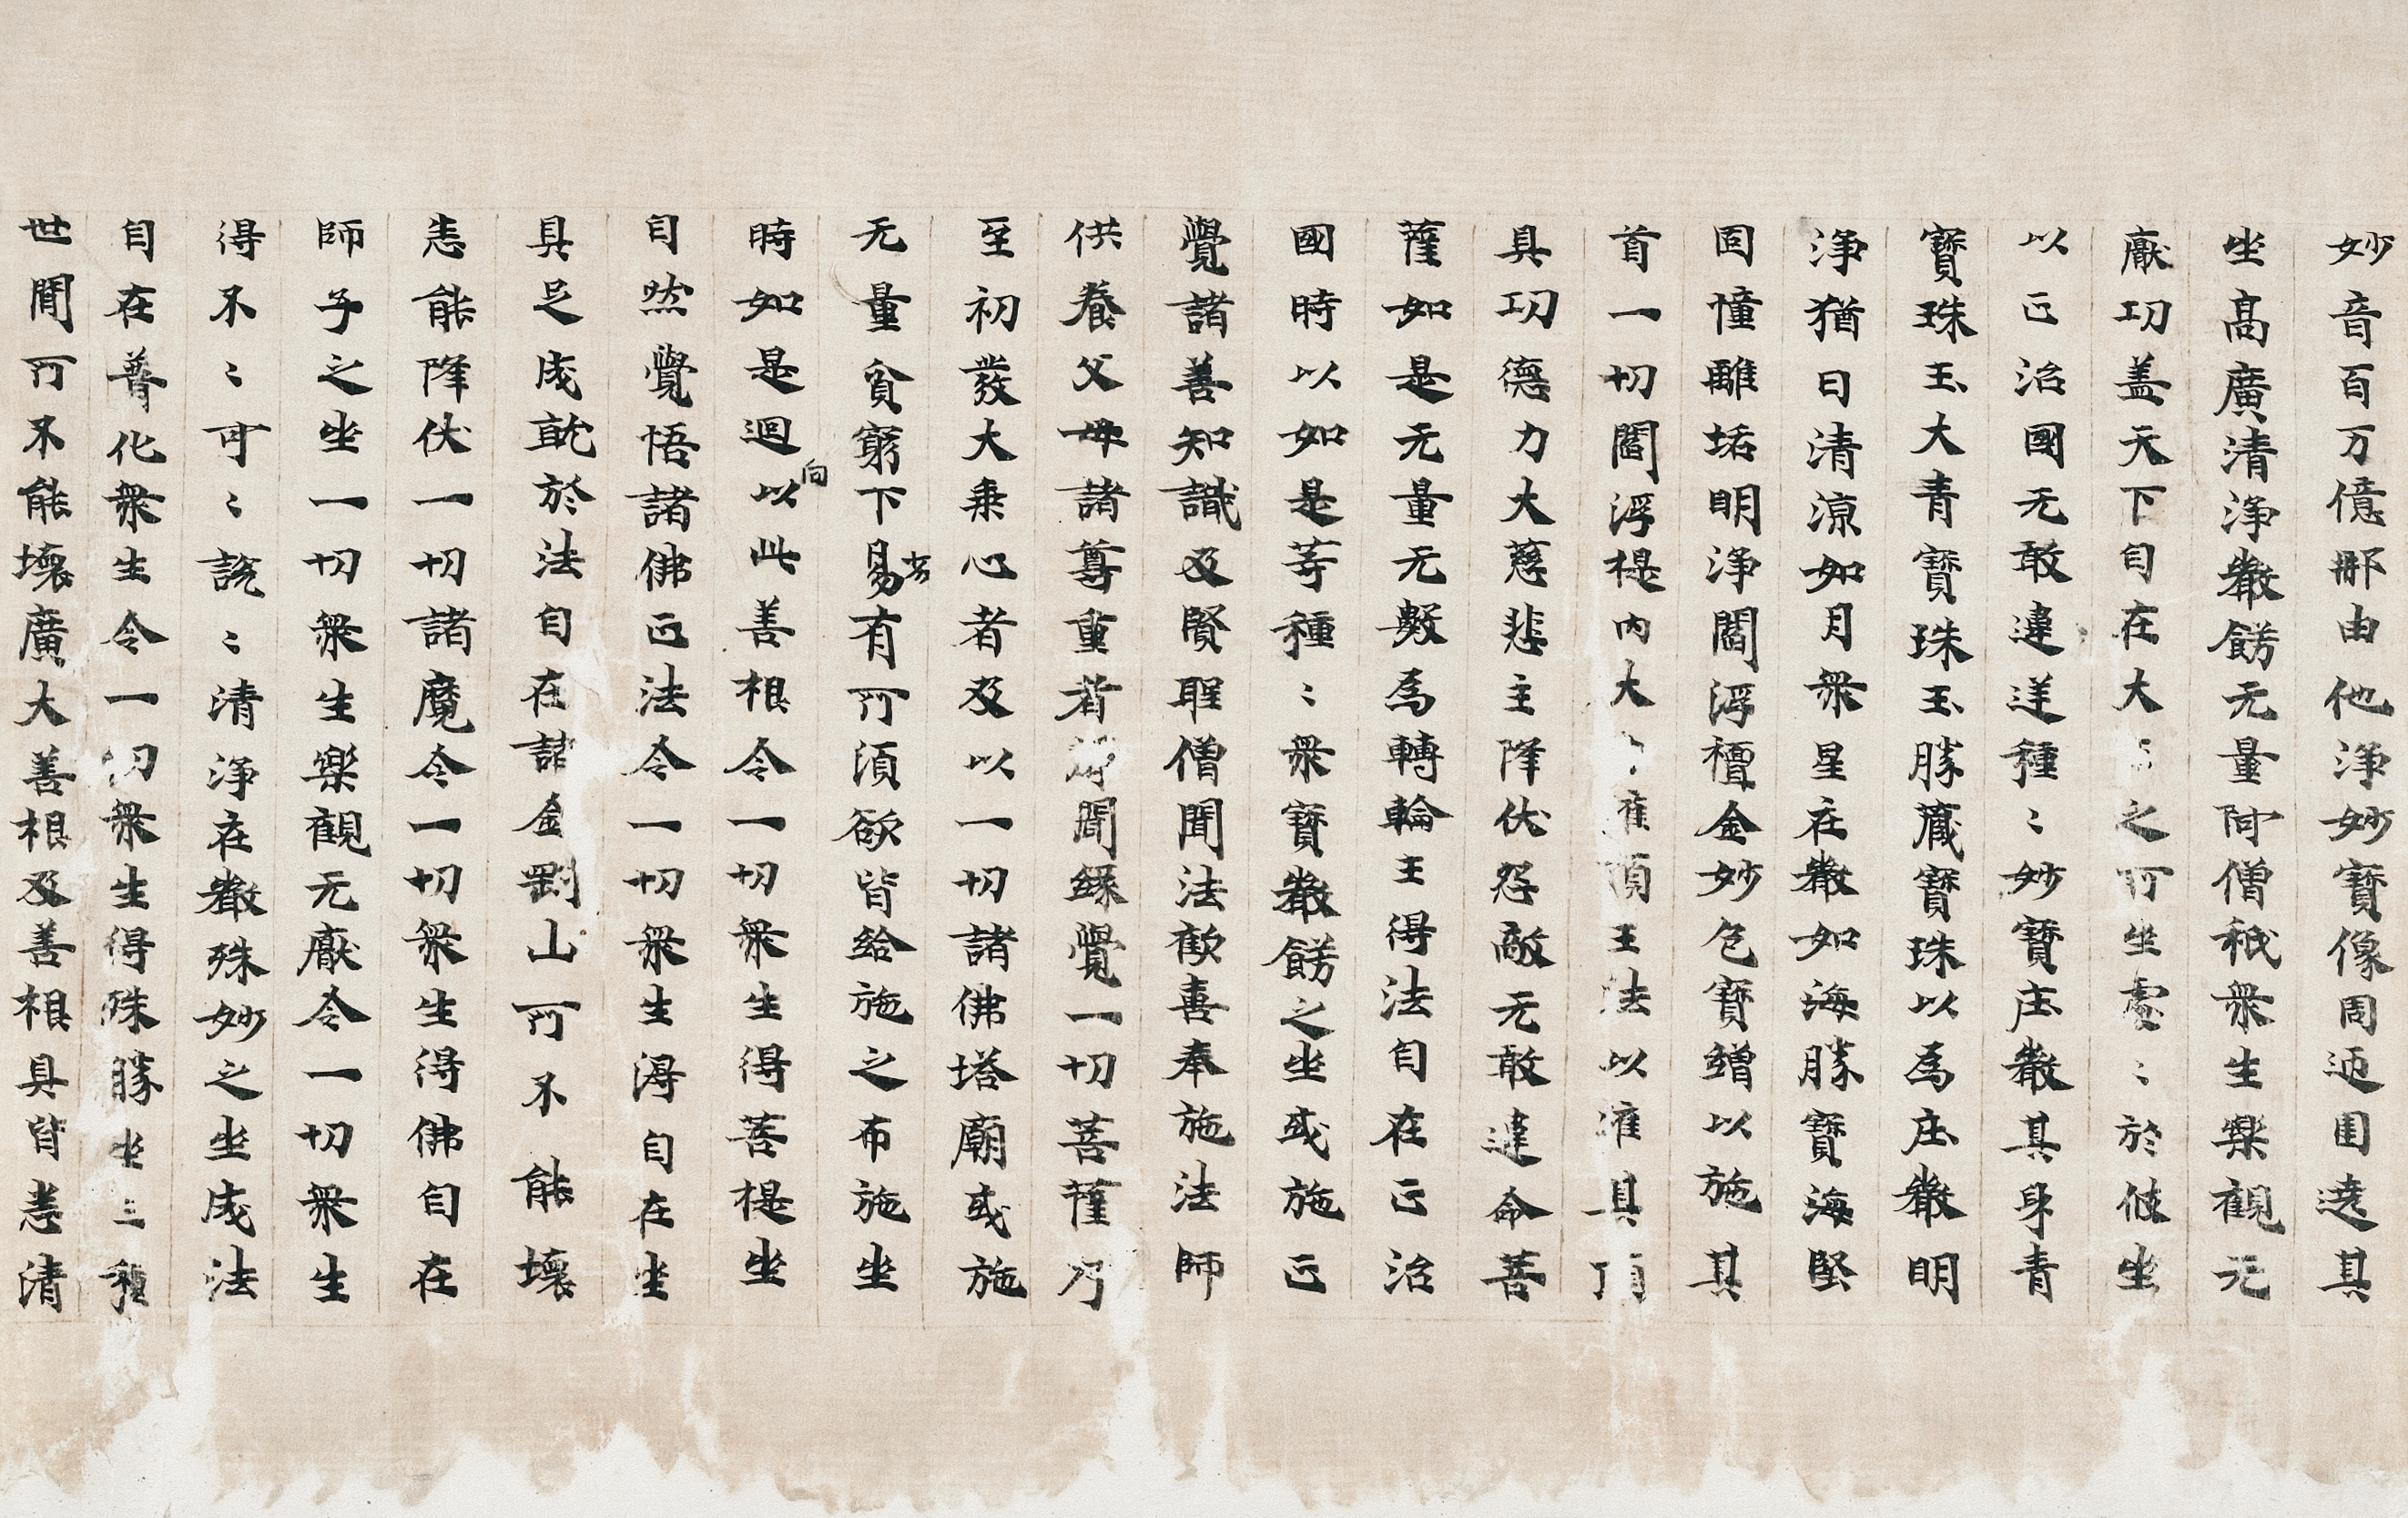 妙音百万億那由他淨妙寶像周迊圍遶其
坐高廣清淨嚴餝无量阿僧祇衆生樂觀无
厭功盖天下自在大之所坐處〻於彼坐
以正治國无敢違逆種〻妙寶庄嚴其身青
寶珠玉大青寶珠玉勝藏寶珠以爲庄嚴明
淨猶日清涼如月衆星在嚴如海勝寶海堅
固幢離垢明淨閻浮檀金妙色寶繒以施其
首一切閻浮提内大灌頂王法以灌其頂
具功德力大慈悲主降伏怨敵无敢違命菩
薩如是无量无數爲轉輪王得法自在正治
國時以如是等種〻衆寶嚴餝之坐或施正
覺諸善知識及賢聖僧聞法歡喜奉施法師
供養父母諸尊重者聲聞緣覺一切菩薩乃
至初發大乘心者及以一切諸佛塔廟或施
无量貧窮下易劣有所須欲皆給施之布施坐
時如是迴向以此善根令一切衆生得菩提坐
自然覺悟諸佛正法令一切衆生得自在坐
具足成就於法自在諸金剛山所不能壞
悉能降伏一切諸魔令一切衆生得佛自在
師子之坐一切衆生樂觀无厭令一切衆生
得不〻可〻說〻清淨在嚴殊妙之坐成法
自在普化衆生令一切衆生得殊勝坐三種
世間所不能壞廣大善根及善根具皆悉清